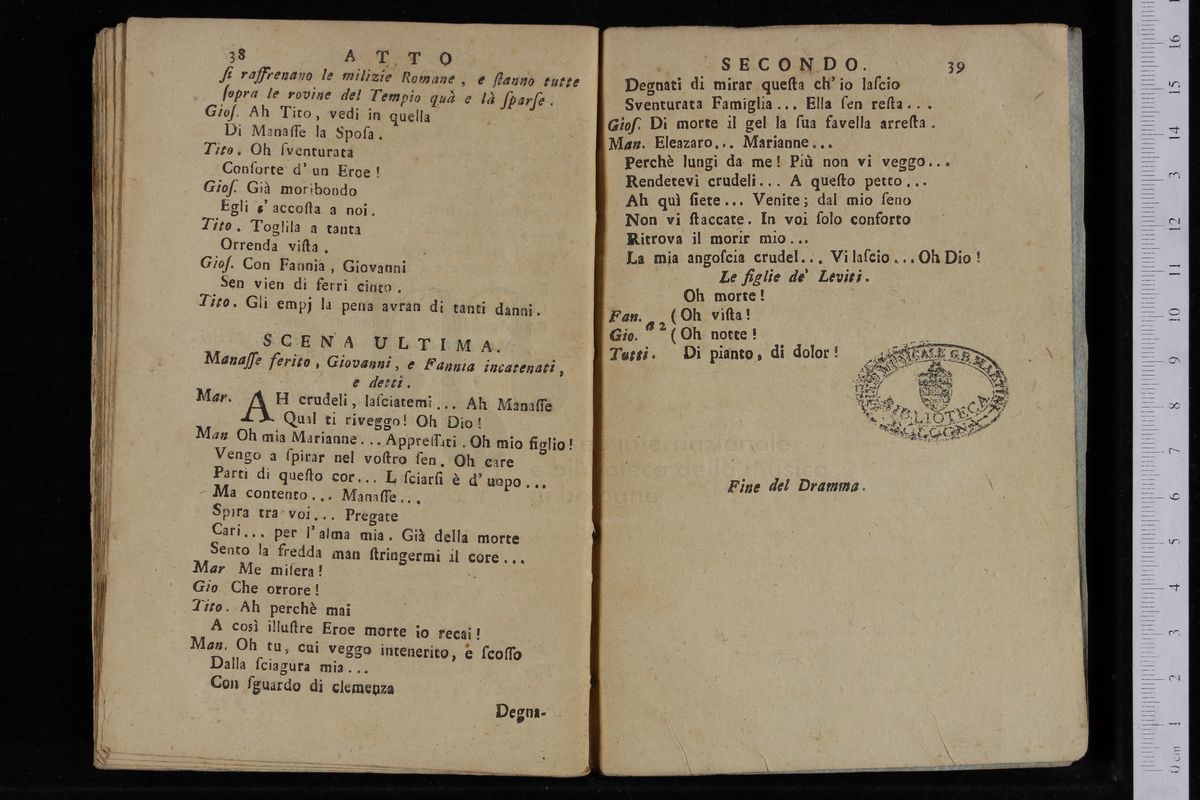 38 ATTO
ſi raffrenano le milizie Romane, e ſtanno tutte
ſopra le rovine del Tempio quà e là ſparſe.
Gioſ. Ah Tito, vedi in quella
Di Manaſſe la Spoſa.
Tito. Oh ſventurata
Conſorte d' un Eroe!
Gioſ. Già moribondo
Egli s' accoſta a noi.
Tito. Toglila a tanta
Orrenda viſta.
Gioſ. Con Fannia, Giovanni
Sen vien di ferri cinto.
Tito. Gli empj la pena avran di tanti danni.
SCENA ULTIMA.
Manaſſe ferito, Giovanni, e Fannia incatenati,
e detti.
Mar. AH crudeli, laſciatemi... Ah Manaſſe
Qual ti riveggo! Oh Dio!
Man Oh mia Marianne... Appreſſati. Oh mio figlio!
Vengo a ſpirar nel voſtro ſen. Oh care
Parti di queſto cor... L ſciarſi è d' uopo...
Ma contento... Manaſſe...
Spira tra voi... Pregate
Cari... per l' alma mia. Già della morte
Sento la fredda man ſtringermi il core...
Mar Me miſera!
Gio Che orrore!
Tito. Ah perchè mai
A così illuſtre Eroe morte io recai!
Man. Oh tu, cui veggo intenerito, e ſcoſſo
Dalla ſciagura mia...
Con ſguardo di clemenza
Degna-
SECONDO. 39
Degnati di mirar queſta ch' io laſcio
Sventurata Famiglia... Ella ſen reſta...
Gioſ. Di morte il gel la ſua favella arreſta.
Man. Eleazaro... Marianne...
Perchè lungi da me! Più non vi veggo...
Rendetevi crudeli... A queſto petto...
Ah quì ſiete... Venite; dal mio ſeno
Non vi ſtaccate. In voi ſolo conforto
Ritrova il morir mio...
La mia angoſcia crudel... Vi laſcio... Oh Dio!
Le figlie de' Leviti.
Oh morte!
Fan. a 2 (Oh viſta!
Gio. (Oh notte!
Tutti. Di pianto, di dolor!
MUSICALE G.B. MARTINI
BIBLIOTECA
BOLOGNA
Fine del Dramma.
museo internazionale
e biblioteca della musica
di bologna
0 cm 1 2 3 4 5 6 7 8 9 10 11 12 13 14 15 16